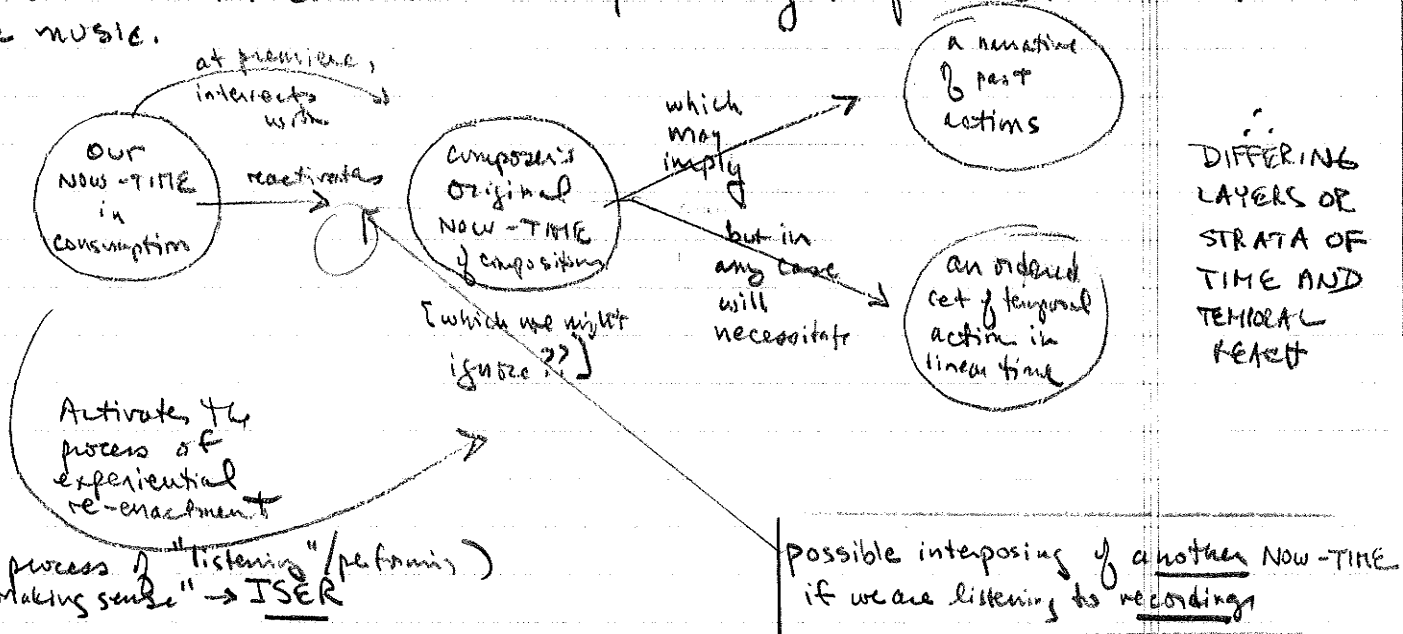 music.
at premiere,
intersects
with
our
NOW-TIME
in
consumption
reactivates
composer's
original
NOW-TIME
of composition
[which we might
ignore??]
which
may
imply
a narrative
of past
actions
but in
any case
will
necessitate
an ordered
set of temporal
action in
linear time
∴
DIFFERING
LAYERS OR
STRATA OF
TIME AND
TEMPORAL
REACH
Activates the
process of
experiential
re-enactment
process of "listening"/performing)
making sense" → ISER
possible interposing of another NOW-TIME
if we are listening to recordings